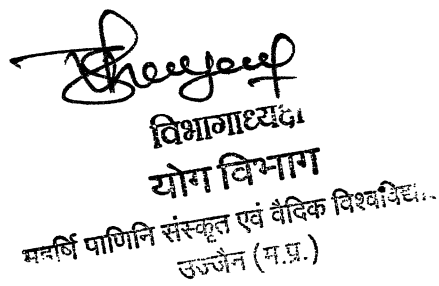 विभागाध्यक्ष
योग विभाग
महर्षि पाणिनि संस्कृत एवं वैदिक विश्वविद्या
उज्जैन (म.प्र.)